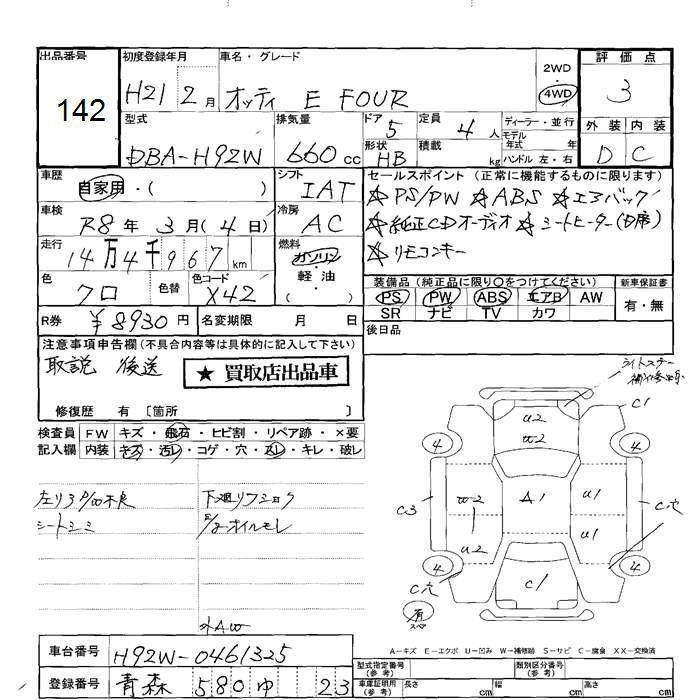 出品番号 142
初度登録年月 H21 2月
車名・グレード オッティ E FOUR
2WD
4WD
評価点 3
外装 内装
D C
型式 DBA-H92W
排気量 660cc
ドア 5
形状 HB
定員 4人
積載 kg
ディーラー・並行
モデル年式 年式
ハンドル 左・右
車歴 自家用・( )
シフト IAT
車検 R8年 3月(4日)
冷房 AC
走行 14万4千967km
燃料 ガソリン・軽油 ( )
色 クロ 色替
色コード X42
R券 ¥8930円
名変期限 月 日
セールスポイント(正常に機能するものに限ります)
☆PS/PW ☆ABS ☆エアバッグ
☆純正CDオーディオ ☆シートヒーター(D席)
☆リモコンキー
装備品(純正品に限り○をつけてください)
新車保証書
PS PW ABS エアB AW
SR ナビ TV カワ
有・無
後日品
注意事項申告欄(不具合内容等は具体的に記入して下さい)
取説 後送
★ 買取店出品車
修復歴 有 〔箇所 〕
検査員記入欄
FW キズ・飛石・ヒビ割・リペア跡・×要
内装 キズ・汚レ・コゲ・穴・スレ・キレ・破レ
シートシミ
下廻りフショク
E/gオイルモレ
外AW
C1
4 U2 W2 4
C3 W2 A1 U1 C穴
U2 U1
4 C1 4
C穴
有 スペア
A-キズ E-エクボ U-凹み W-補修跡 S-サビ C-腐食 XX-交換済
車台番号 H92W-0461325
登録番号 青森 580 ゆ 23
型式指定番号(参考)
類別区分番号(参考)
車庫証明用(参考) 長さ cm 幅 cm 高さ cm